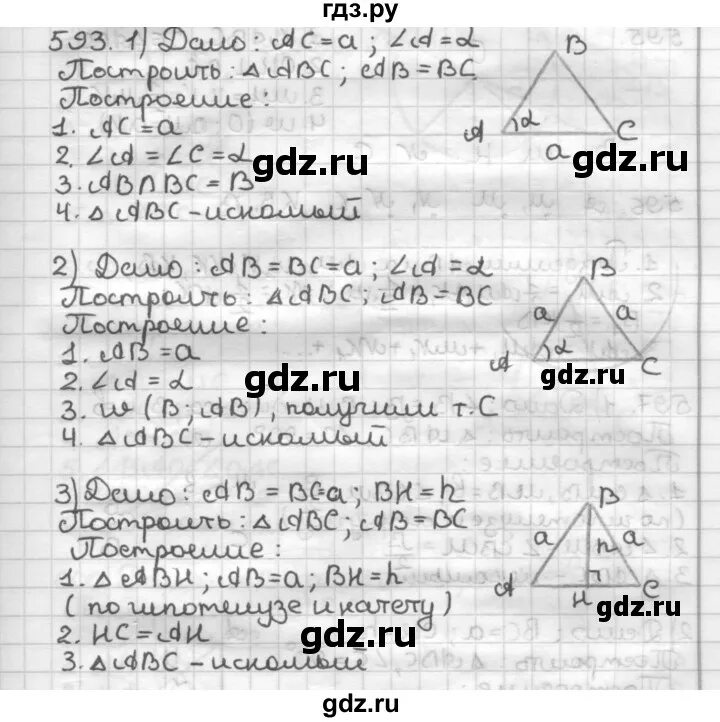 гдз.ру
593. 1) Дано: AC = a; ∠A = α
Построить: △ABC; AB = BC
Построение:
1. AC = a
2. ∠A = ∠C = α
3. AB ∩ BC = B
4. △ABC – искомый
B
A
α
C
a
gdz.ru
gdz.ru
2) Дано: AB = BC = a; ∠A = α
Построить: △ABC; AB = BC
Построение:
1. AB = a
2. ∠A = α
3. w (B; AB), получим т. C
4. △ABC – искомый
B
a
a
A
α
C
gdz.ru
gdz.ru
gdz.ru
3) Дано: AB = BC = a; BH = h
Построить: △ABC; AB = BC
Построение:
1. △ABH; AB = a; BH = h
(по гипотенузе и катету)
2. HC = AH
3. △ABC – искомый
B
a
h
a
A
H
C
gdz.ru
gdz.ru
gdz.ru
gdz.ru